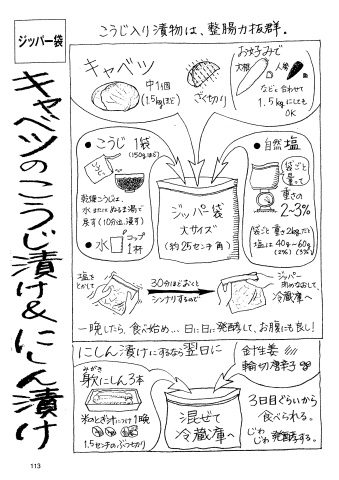 ジッパー袋
キャベツのこうじ漬け&にしん漬け
こうじ入り漬物は、整腸力抜群。
キャベツ
中1個
(1.5kgほど)
ざく切り
お好みで
大根
人参
などと合わせて
1.5kgにしても
OK
●こうじ 1袋
(150gほど)
乾燥こうじは、
水またはぬるま湯で
戻す(10分位、浸す)
●水
コップ
1杯
ジッパー袋
大サイズ
(約25センチ角)
●自然塩
袋ごと
量って
重さの
2~3%
袋ごと重さ2kgだと
塩は40g~60g
(2%) (3%)
塩を
とかして
30分ほどおくと
シンナリするので
ジッパー
閉めなおして、
冷蔵庫へ
一晩したら、食べ始め…日に日に発酵して、お腹にも良し!
にしん漬けにするなら翌日に
みがき
身欠にしん3本
米のとぎ汁につけ1晩
1.5センチのぶつ切り
針生姜
輪切唐辛子
混ぜて
冷蔵庫へ
3日目ぐらいから
食べられる。
じわ
じわ発酵する。
113